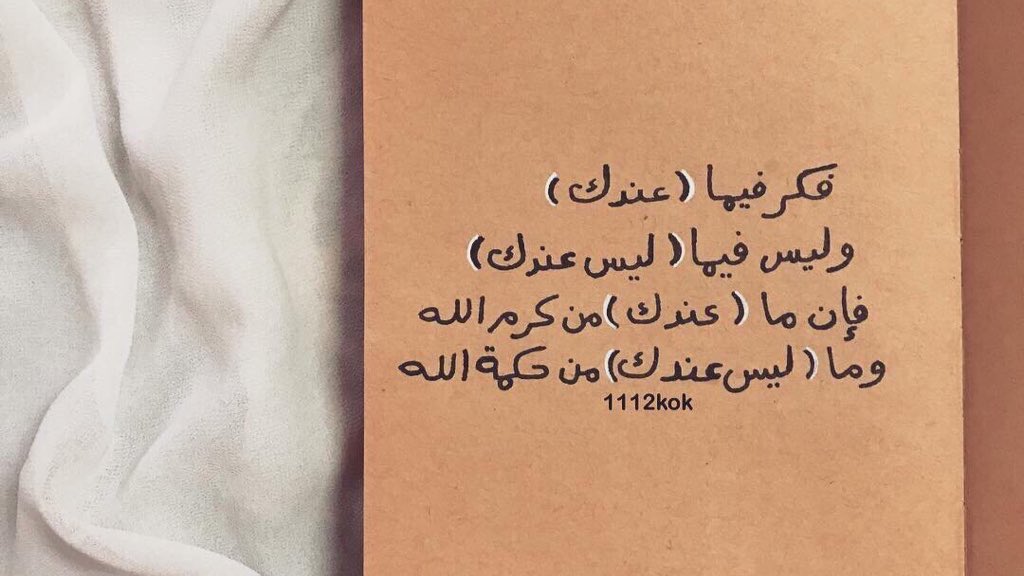 فكر فيما (عندك)
وليس فيما (ليس عندك)
فإن ما (عندك) من كرم الله
وما (ليس عندك) من حكمة الله
1112kok